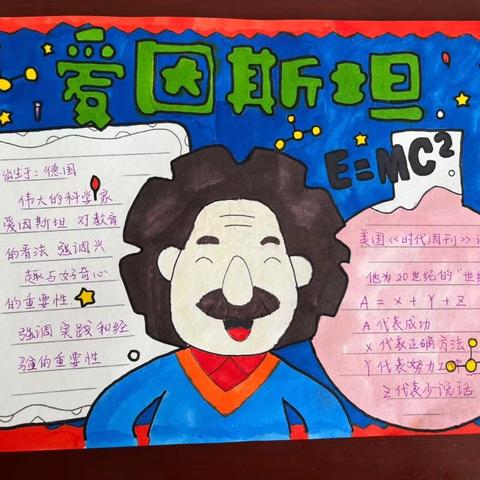 爱因斯坦
E=MC²
出生于：德国
伟大的科学家
爱因斯坦 对教育
的看法 强调兴
趣与好奇心
的重要性.
强调 实践和经
验的重要性
美国《时代周刊》
他为20世纪的"世纪
A = x + Y + Z
A代表成功
x代表正确方法
Y代表努力工作
Z代表少说话